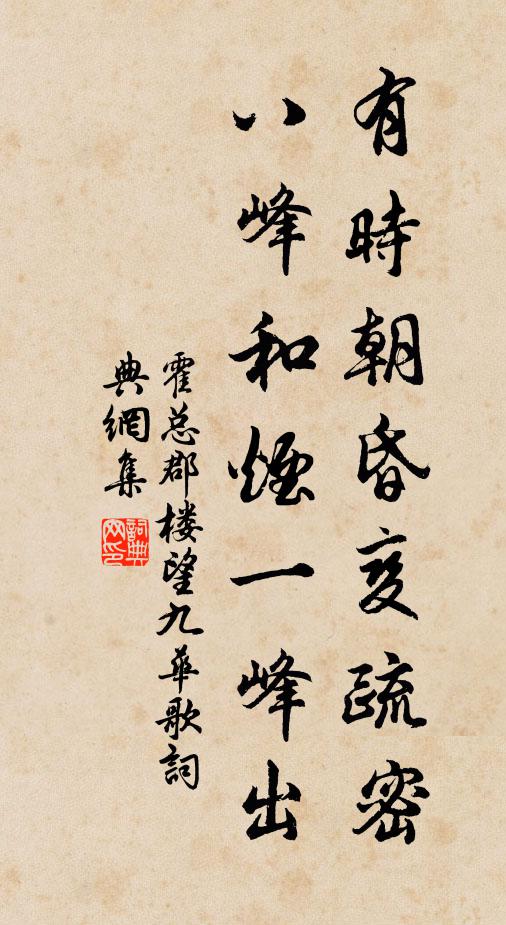 有時朝昏变疏密
八峰和煙一峰出
霍总郡楼望九華歌詞
典網集
詞典网印